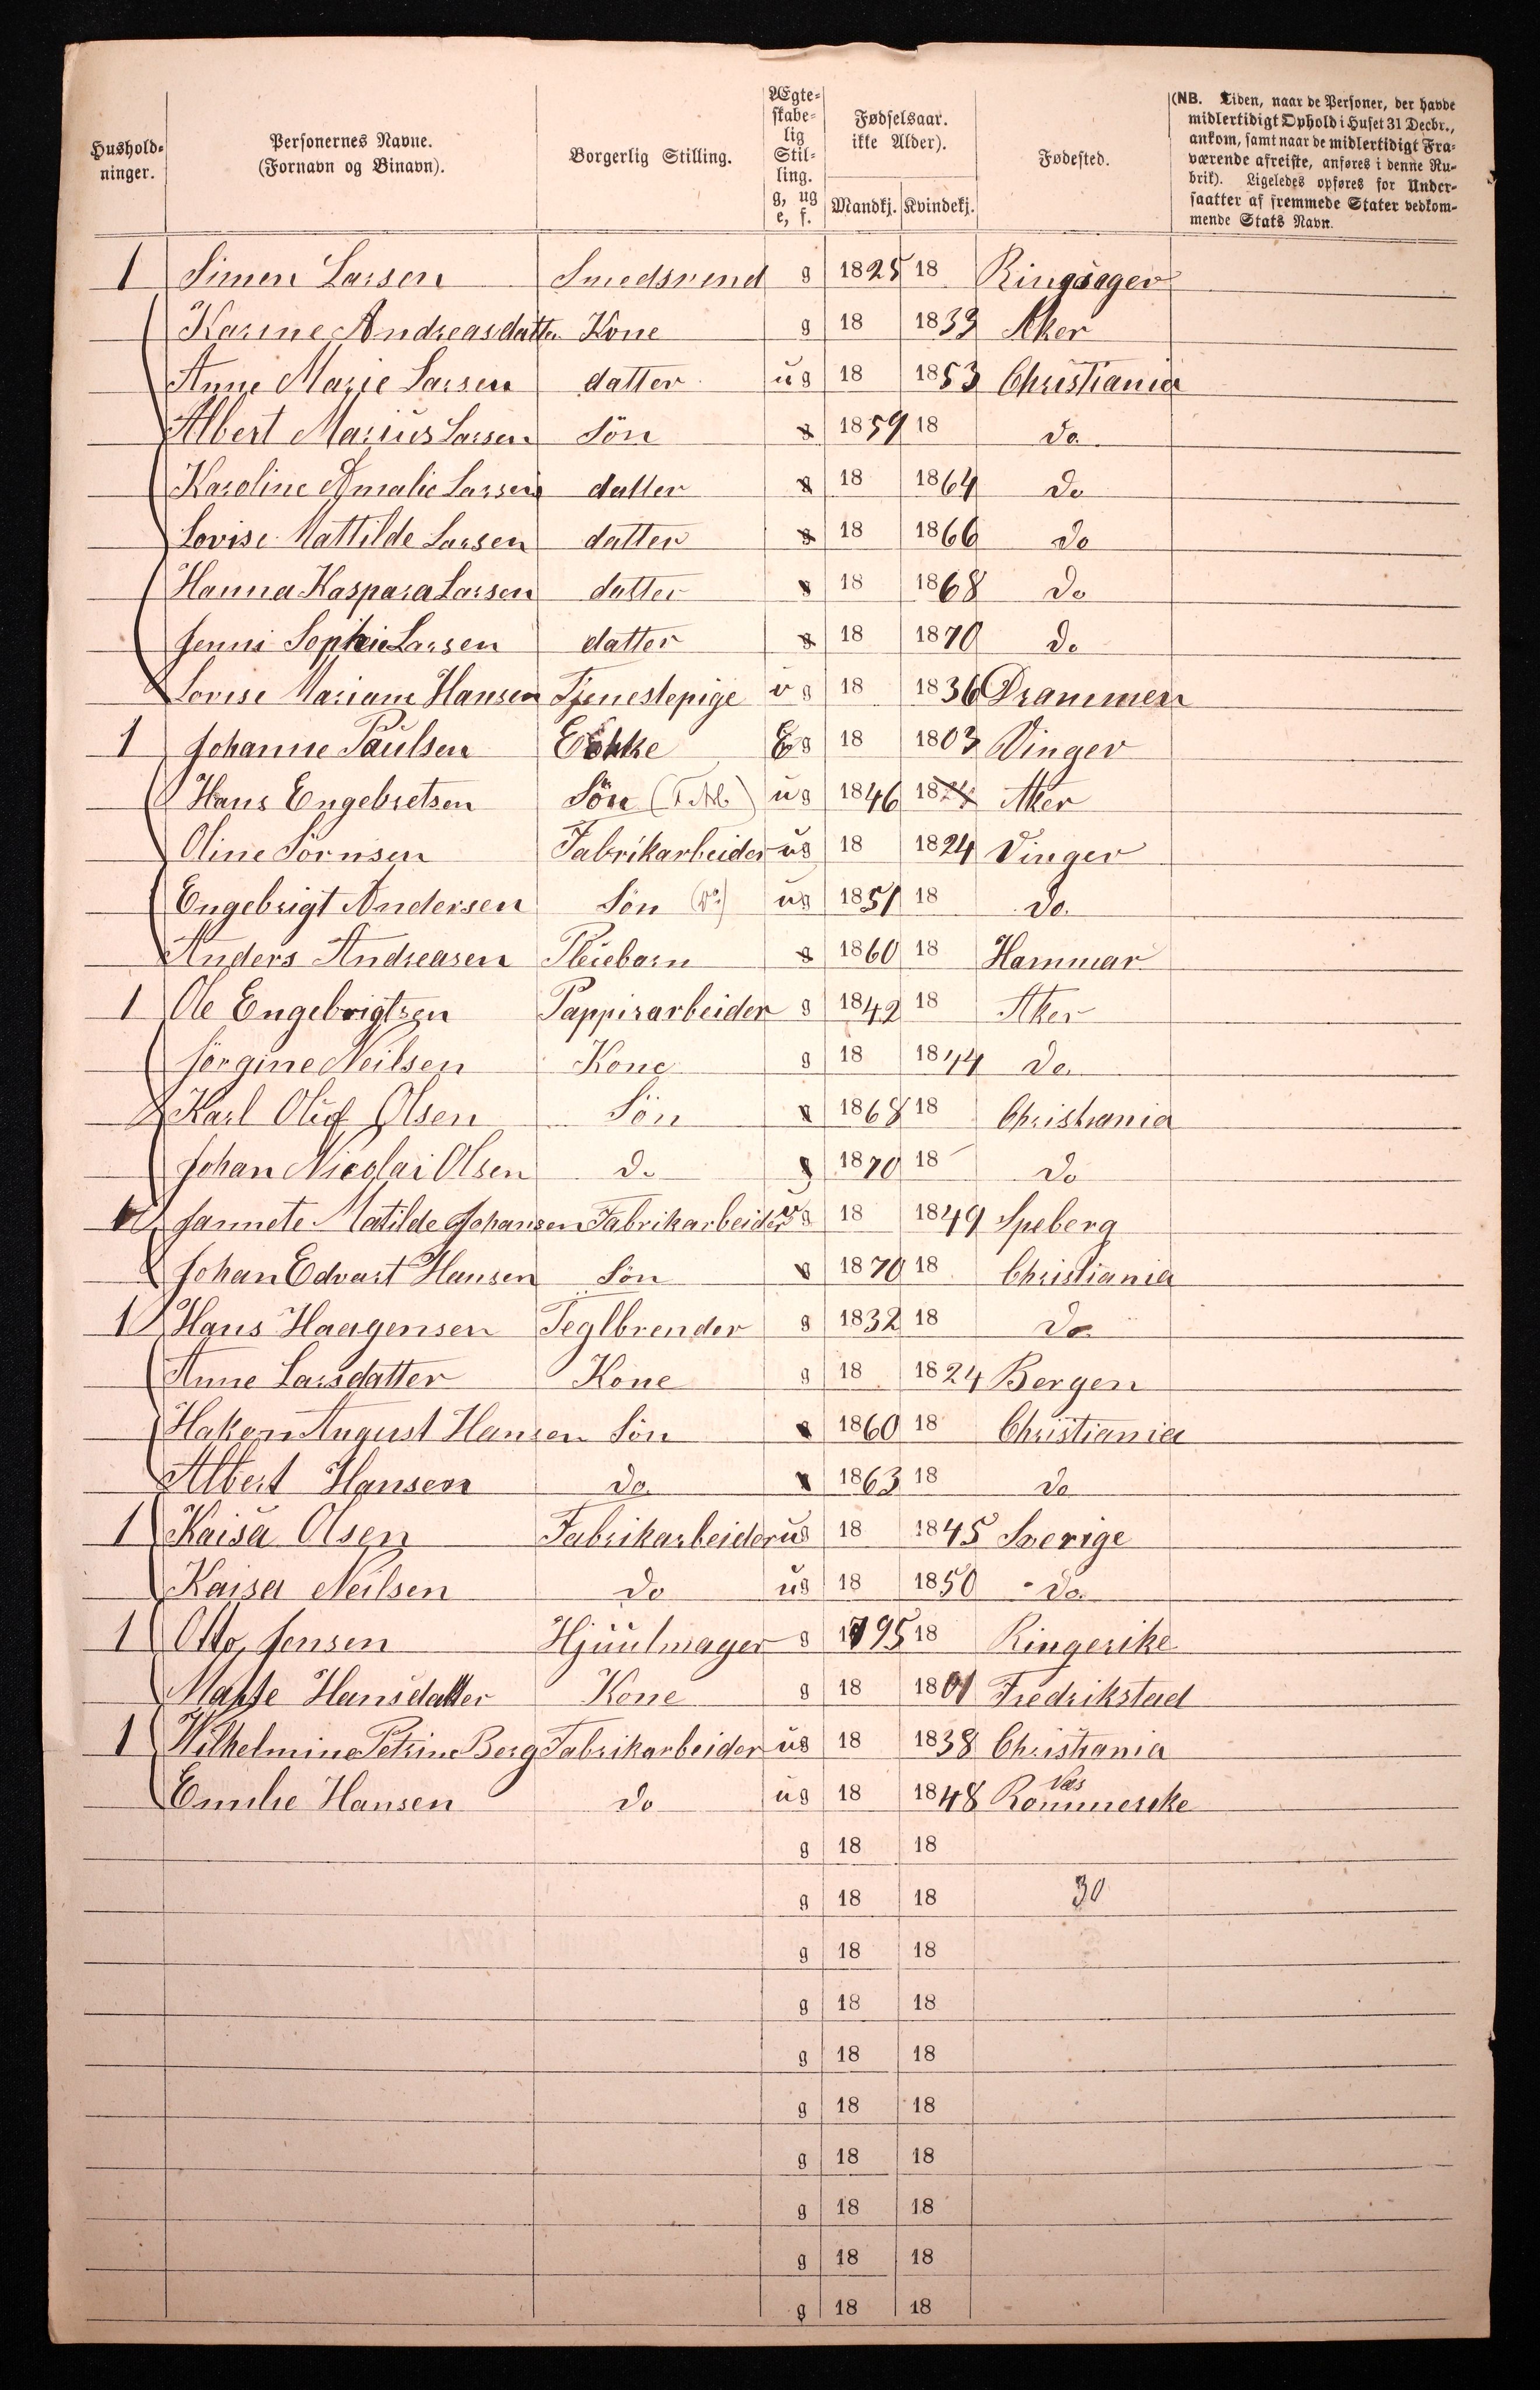 Hushold-
ninger.
Personernes Navne.
(Fornavn og Binavn).
Borgerlig Stilling.
Ægte-
skabe-
lig
Stil-
ling.
g, ug
e, f.
Fødselsaar.
ikke Alder).
Mandkj. Kvindekj.
Fødested.
(NB. Tiden, naar de Personer, der havde
midlertidigt Ophold i Huset 31 Decbr.,
ankom, samt naar de midlertidigt Fra-
værende afreiste, anføres i denne Ru-
brik). Ligeledes opføres for Under-
saatter af fremmede Stater vedkom-
mende Stats Navn.
1 Simen Larsen Smedsvend g 1825 18 Ringsager
Karine Andreasdatter Kone g 18 1833 Aker
Anne Marie Larsen datter ug 18 1853 Christiania
Albert Marius Larsen Sön g 1859 18 do
Karoline Amalie Larsen datter g 18 1864 do
Lovise Mattilde Larsen datter g 18 1866 do
Hanna Kaspara Larsen datter g 18 1868 do
Jenni Sophie Larsen datter g 18 1870 do
Lovise Mariane Hansen Tjenestepige ug 18 1836 Drammen
1 Johanne Paulsen Enke Eg 18 1803 Vinger
Hans Engebretsen Sön ug 1846 18 Aker
Oline Sörnsen Fabrikarbeider ug 18 1824 Vinger
Engebrigt Andersen Sön (do) ug 1851 18 do.
Anders Andreasen Pleiebarn g 1860 18 Hammar
1 Ole Engebrigtsen Pappirarbeider g 1842 18 Aker
Jörgine Neilsen Kone g 18 1844 do.
Karl Oluf Olsen Sön g 1868 18 Christiania
Johan Nicolai Olsen do g 1870 18 do
Jannete Matilde Johansen Fabrikarbeider ug 18 1849 Speberg
Johan Edvart Hansen Sön g 1870 18 Christiania
1 Hans Haagensen Teglbrender g 1832 18 do
Anne Larsdatter Kone g 18 1824 Bergen
Hakon August Hansen Sön g 1860 18 Christiania
Albert Hansen do g 1863 18 do
1 Kaisa Olsen Fabrikarbeider ug 18 1845 Sverige
Kaisa Neilsen do ug 18 1850 do.
1 Otto Jensen Hjuulmager g 1795 18 Ringerike
Marte Hansdatter Kone g 18 1801 Fredrikstad
1 Wilhelmine Petrine Berg Fabrikarbeider ug 18 1838 Christiania
Emilie Hansen do ug 18 1848 Næs Rommerike
g 18 18
g 18 18 30
g 18 18
g 18 18
g 18 18
g 18 18
g 18 18
g 18 18
g 18 18
g 18 18